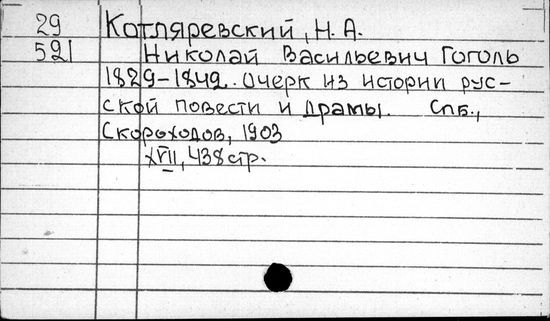 29 Котляревский, Н. А.
521 Николай Васильевич Гоголь
1829-1842. Очерк из истории рус-
ской повести и драмы. Спб.,
Скороходов, 1903
XVII, 438 стр.